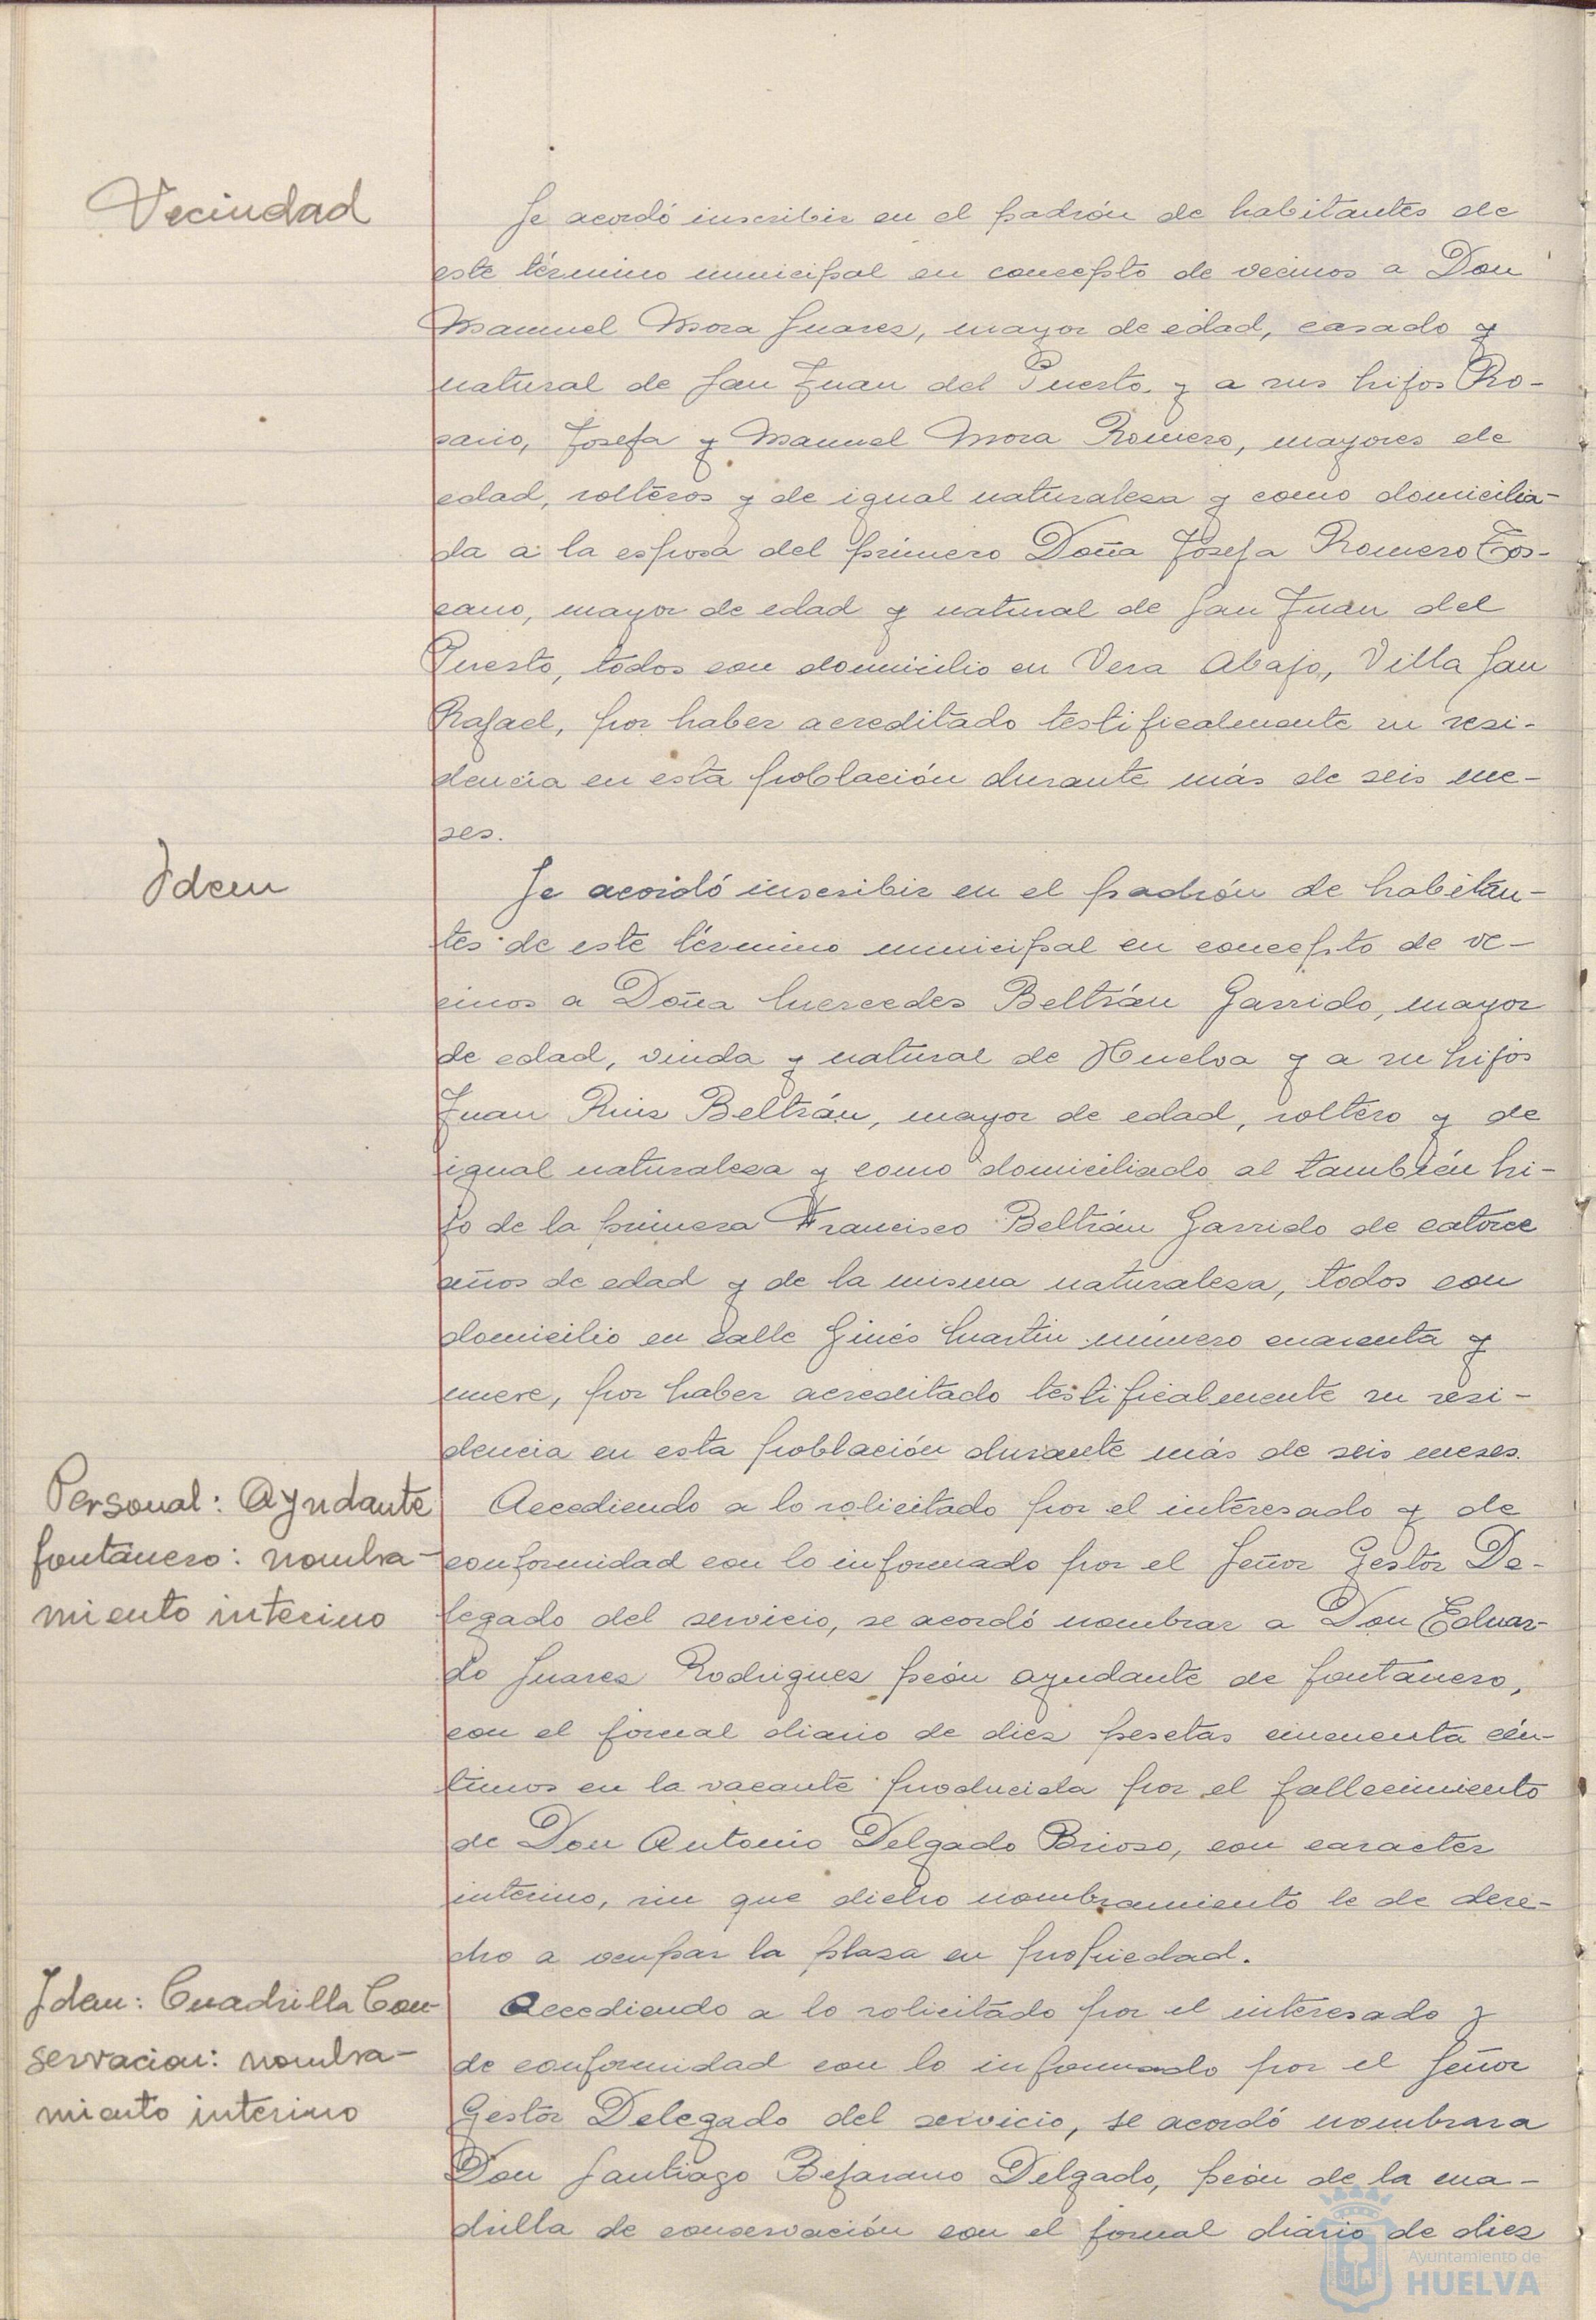 Vecindad
Se acordó inscribir en el padrón de habitantes de
este término municipal en concepto de vecinos a Don
Manuel Mora Juarez, mayor de edad, casado y
natural de San Juan del Puerto, y a sus hijos Ro-
sario, Josefa y Manuel Mora Romero, mayores de
edad, solteros y de igual naturaleza y como domicilia-
da a la esposa del primero Doña Josefa Romero Tos-
cano, mayor de edad y natural de San Juan del
Puerto, todos con domicilio en Vera Abajo, Villa San
Rafael, por haber acreditado testificalmente su resi-
dencia en esta población durante más de seis me-
ses.
Idem
Se acordó inscribir en el padrón de habitan-
tes de este término municipal en concepto de ve-
cinos a Doña Mercedes Beltrán Garrido, mayor
de edad, viuda y natural de Huelva y a su hijos
Juan Ruiz Beltrán, mayor de edad, soltero y de
igual naturaleza y como domiciliado al también hi-
jo de la primera Francisco Beltrán Garrido de catorce
años de edad y de la misma naturaleza, todos con
domicilio en calle Ginés Martin número cuarenta y
nueve, por haber acreditado testificalmente su resi-
dencia en esta población durante más de seis meses.
Personal: Ayudante
fontanero: nombra-
miento interino
Accediendo a lo solicitado por el interesado y de
conformidad con lo informado por el Señor Gestor De-
legado del servicio, se acordó nombrar a Don Eduar-
do Juarez Rodriguez peón ayudante de fontanero,
con el jornal diario de diez pesetas cincuenta cén-
timos en la vacante producida por el fallecimiento
de Don Antonio Delgado Brioso, con caracter
interino, sin que dicho nombramiento le de dere-
cho a ocupar la plaza en propiedad.
Idem: Cuadrilla Con-
servacion: nombra-
miento interino
Accediendo a lo solicitado por el interesado y
de conformidad con lo informado por el Señor
Gestor Delegado del servicio, se acordó nombrar a
Don Santiago Bejarano Delgado, peón de la cua-
drilla de conservación con el jornal diario de diez
Ayuntamiento de
HUELVA